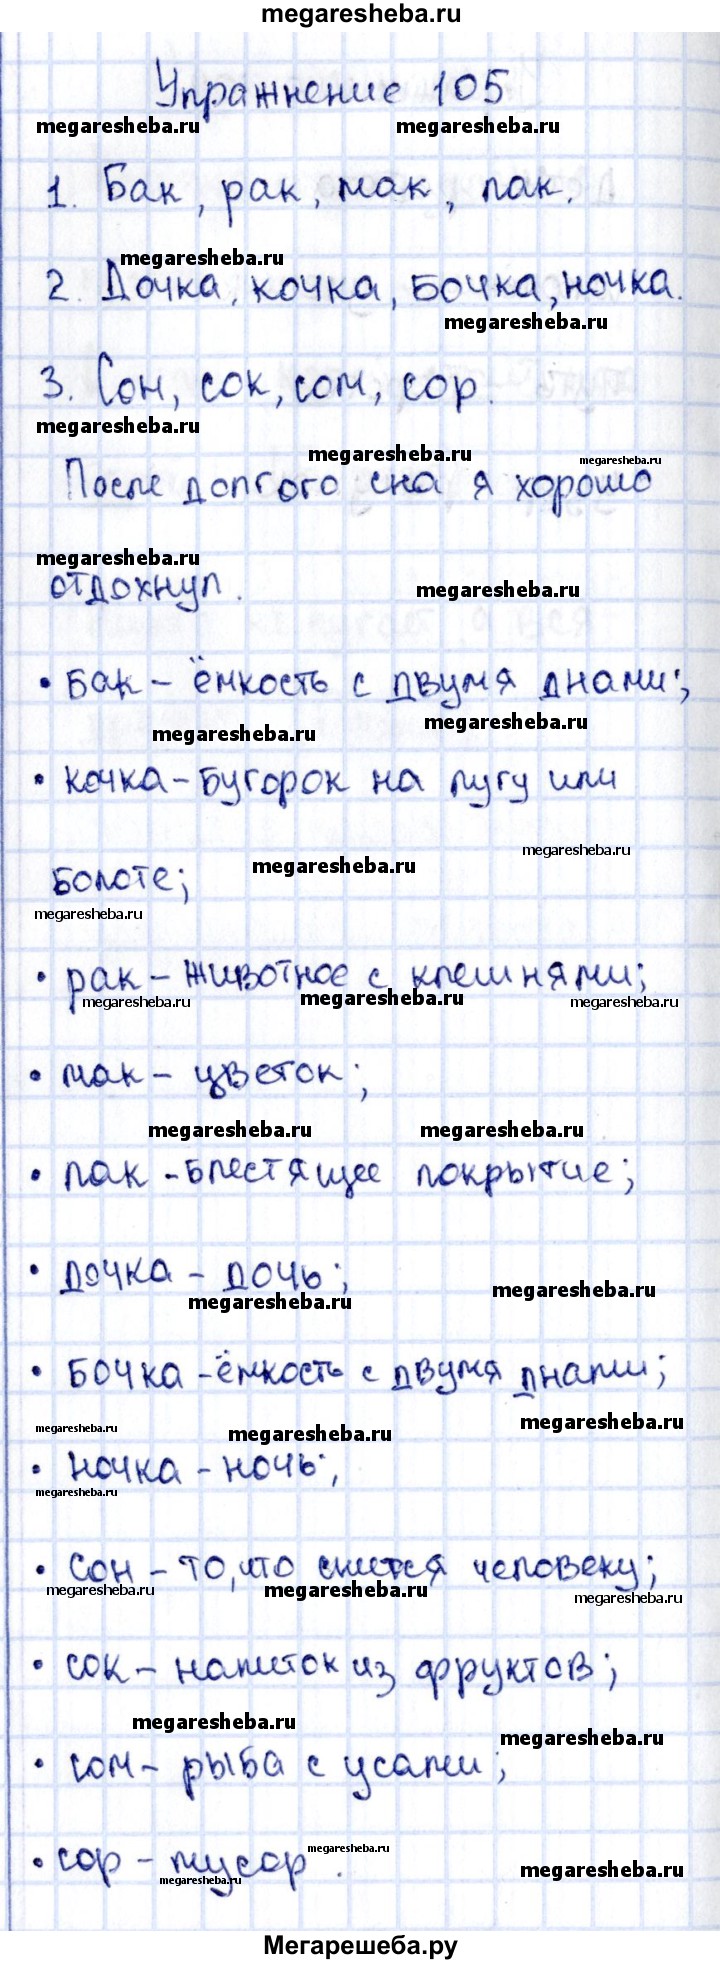 megaresheba.ru
Упражнение 105
megaresheba.ru megaresheba.ru
1. Бак, рак, мак, лак.
megaresheba.ru
2. Дочка, кочка, бочка, ночка.
megaresheba.ru
3. Сон, сок, сом, сор.
megaresheba.ru
megaresheba.ru megaresheba.ru
После долгого сна я хорошо
megaresheba.ru
отдохнул. megaresheba.ru
• бак - ёмкость с двумя днами;
megaresheba.ru megaresheba.ru
• кочка - бугорок на лугу или
megaresheba.ru megaresheba.ru
болоте;
megaresheba.ru
• рак - животное с клешнями;
megaresheba.ru megaresheba.ru megaresheba.ru
• мак - цветок;
megaresheba.ru megaresheba.ru
• лак - блестящее покрытие;
• дочка - дочь;
megaresheba.ru megaresheba.ru
• бочка - ёмкость с двумя днами;
megaresheba.ru megaresheba.ru megaresheba.ru
• ночка - ночь;
megaresheba.ru
• сон - то, что снится человеку;
megaresheba.ru megaresheba.ru megaresheba.ru
• сок - напиток из фруктов;
megaresheba.ru megaresheba.ru
• сом - рыба с усами;
• сор - мусор.
megaresheba.ru megaresheba.ru megaresheba.ru
Мегарешеба.ру